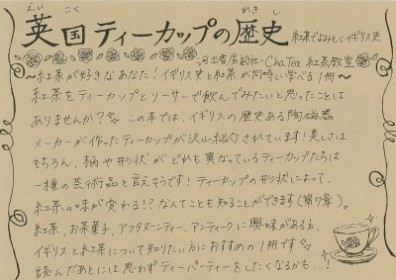 えい こく れき し
英国ティーカップの歴史 紅茶でよみとくイギリス史
河出書房新社・Cha Tea 紅茶教室
～紅茶が好きなあなた！イギリス史と紅茶が同時に学べる1冊～
紅茶をティーカップとソーサーで飲んでみたいと思ったことは
ありませんか？この本では、イギリスの歴史ある陶磁器
メーカーが作ったティーカップが沢山紹介されています！美しさは
もちろん、柄や形状がどれも異なっているティーカップたちは
一種の芸術品と言えそうです！ティーカップの形状によって、
紅茶の味が変わる！？なんてことも知ることができます（第7章）。
紅茶、お茶菓子、アフタヌーンティー、アンティークに興味がある方、
イギリスと紅茶について知りたい方におすすめの1冊です
読んだあとには思わずティーパーティーをしたくなるかも…！